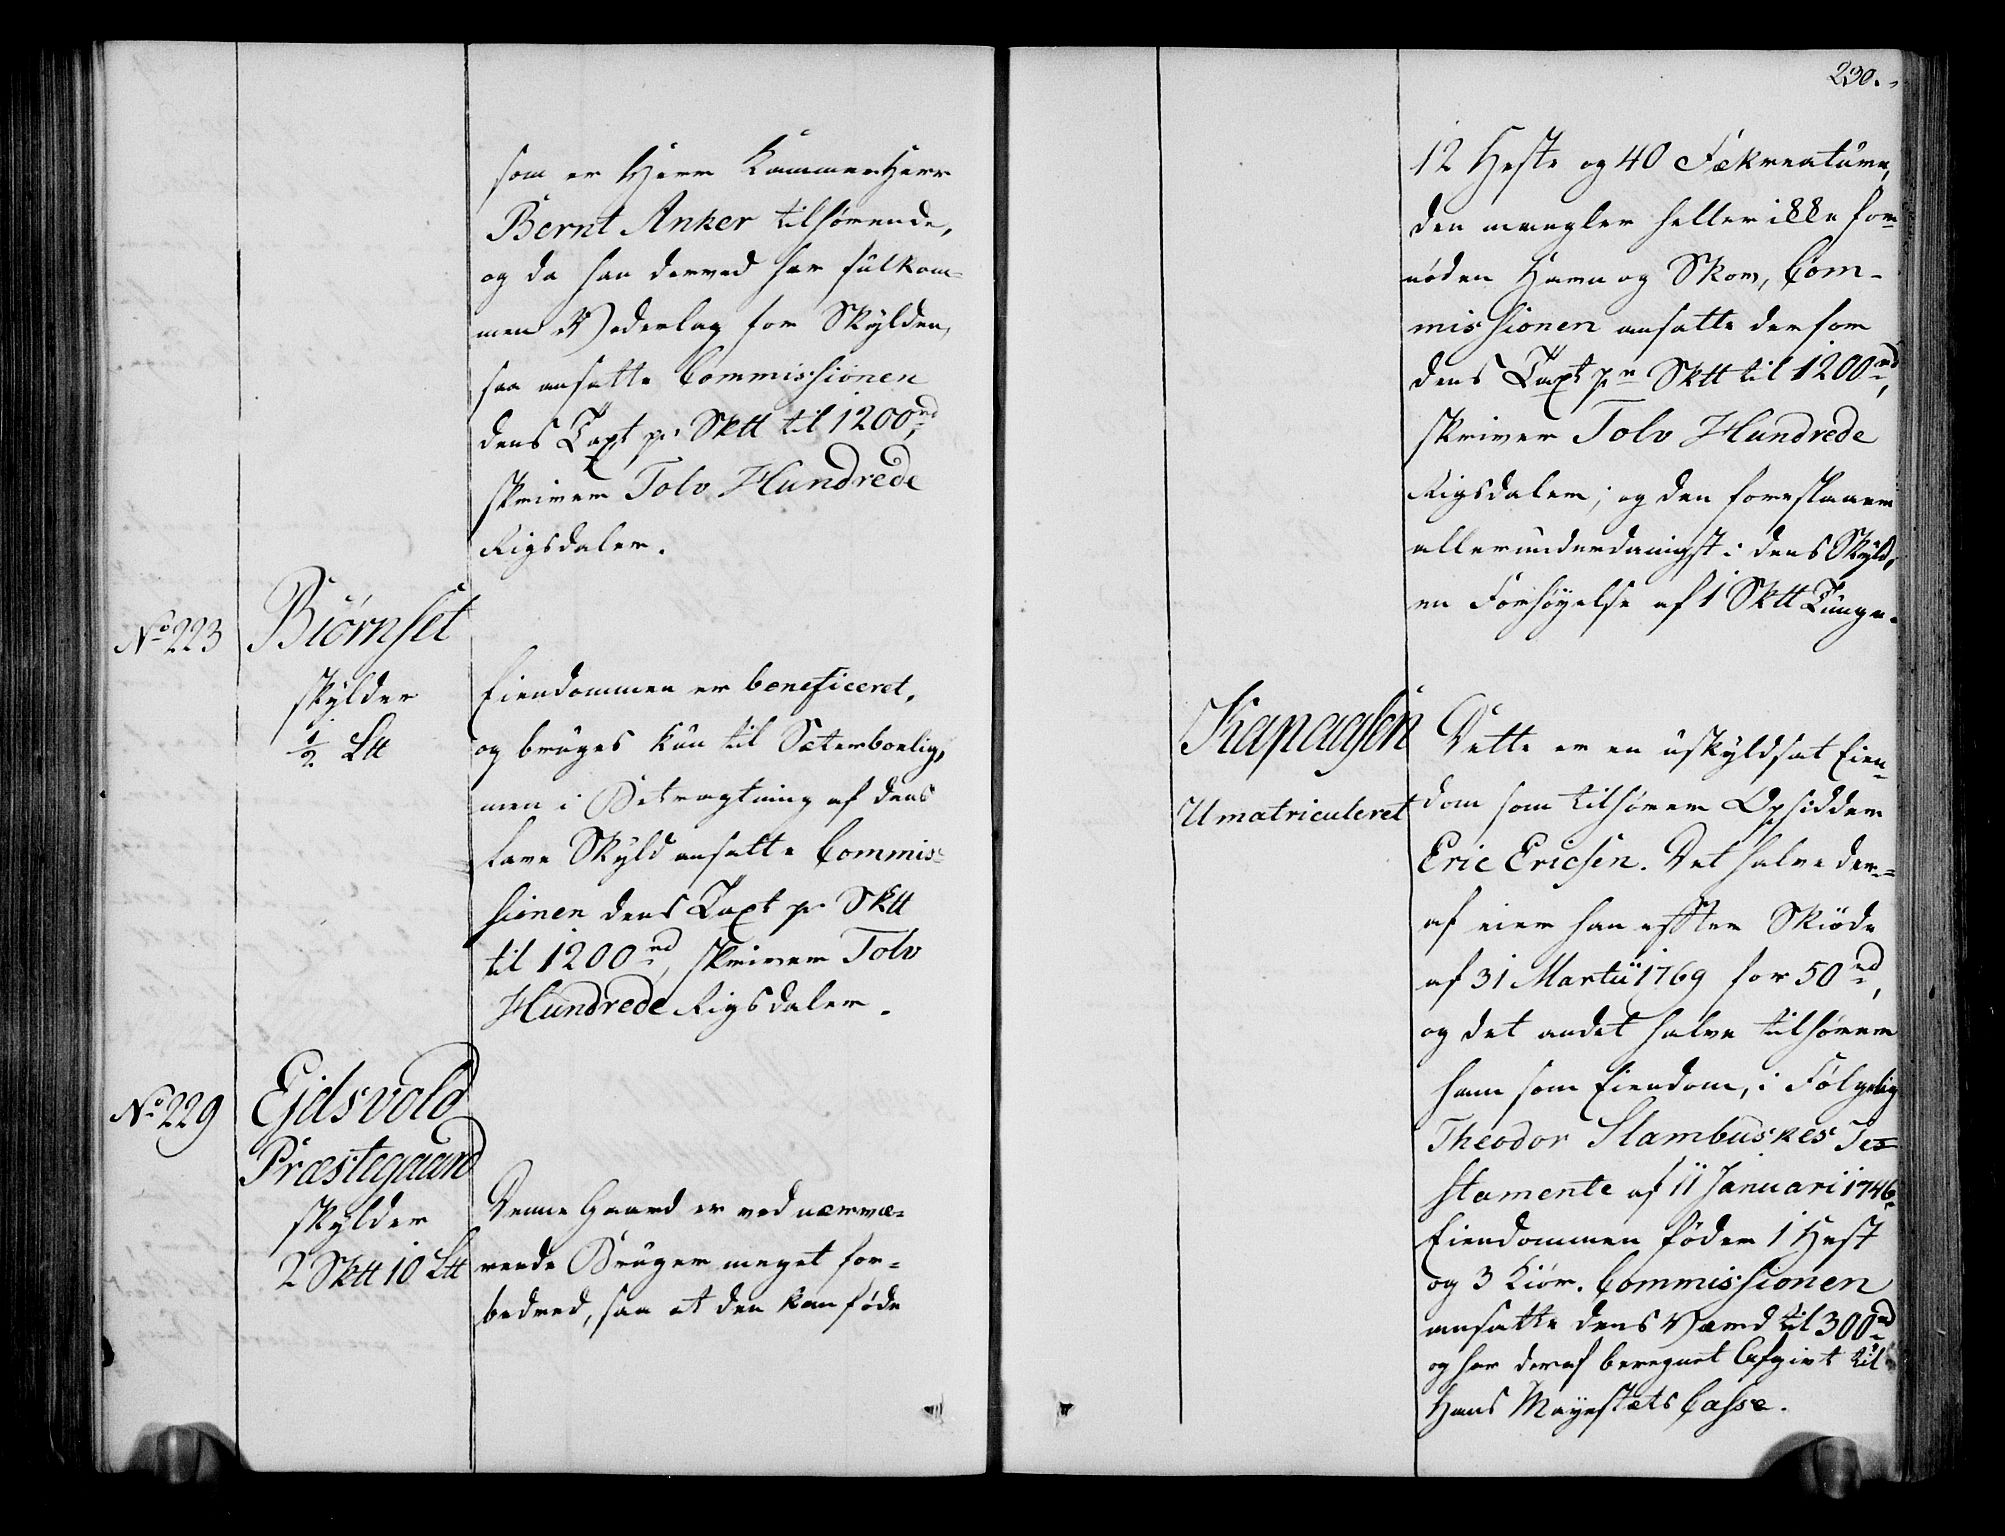 som er Herr Kammerherr
Bernt Anker tilhørende,
og da han derved har fulkom-
men Vederlag for Skylden,
saa ansatte Commissionen
dens Taxt pr Sktt til 1200 rd,
skriver Tolv Hundrede
Rigsdaler.
No 223
Biørnset
skylder
1/2 Ltt
Eiendommen er beneficeret,
og bruges kun til Sæterboelig,
men i Betragtning af dens
lave Skyld ansatte Commis-
sionen dens Taxt pr Sktt
til 1200 rd, skriver Tolv
Hundrede Rigsdaler.
No 229
Ejdsvold
Præstegaard
skylder
2 Sktt 10 Ltt
Denne Gaard er ved nærvæ-
rende Bruger meget for-
bedred, saa at den kan føde
230.
12 Heste og 40 Fækreature,
den mangler heller ikke for-
nøden Havn og Skov, Com-
missionen ansatte derfor
dens Taxt pr Sktt til 1200 rd,
skriver Tolv Hundrede
Rigsdaler; og den foreslaaer
allerunderdanigst i dens Skyld,
en Forhøyelse af 1 Sktt Tunge.
Umatriculeret
Dette er en uskyldsat Eien-
dom som tilhører Opsidder
Eric Ericsen. Det halve der-
af eier han efter Skiøde
af 31 Martii 1769 for 50 rd,
og det andet halve tilhører
ham som Eiendom, i Følgelig
Theodor Slambuskes Te-
stamente af 11 Januarii 1746.
Eiendommen føder 1 Hest
og 3 Kiør. Commissionen
ansatte dens Værd til 300 rd
og har deraf beregnet Afgivt til
Hans Mayestæts Casse.